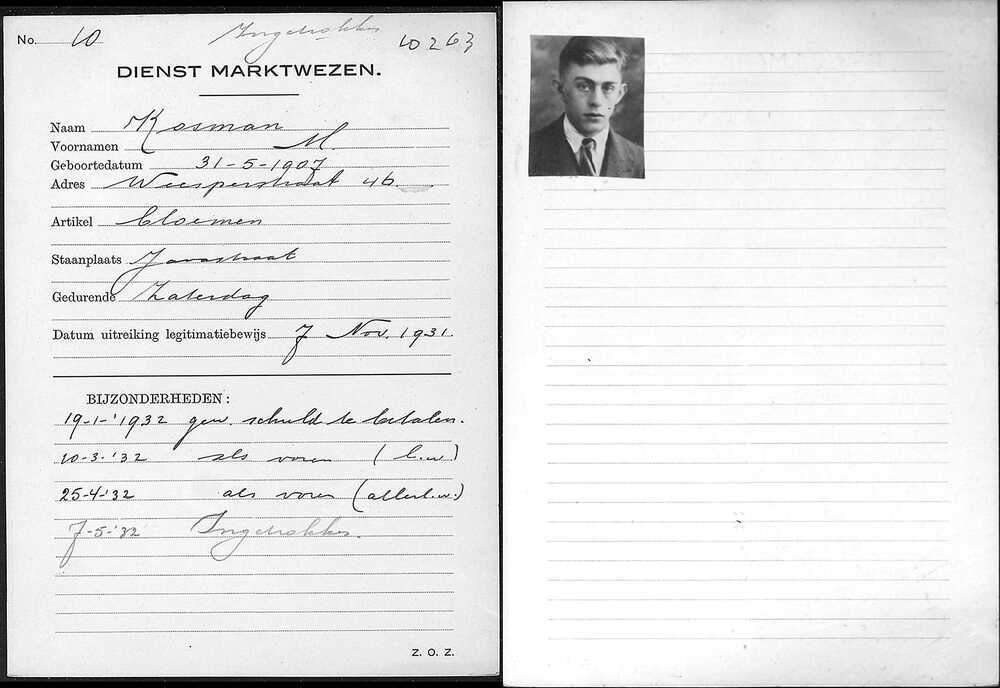 No. 10 Ingetrokken 10263
DIENST MARKTWEZEN.
Naam Kosman
Voornamen M.
Geboortedatum 31-5-1907
Adres Weesperstraat 46.
Artikel bloemen
Staanplaats Javastraat
Gedurende Zaterdag
Datum uitreiking legitimatiebewijs 7 Nov. 1931.
BIJZONDERHEDEN:
19-1-'1932 gew. schuld te betalen.
10-3-'32 als voren (l.w.)
25-4-'32 als voren (allerl.w.)
7-5-'32 Ingetrokken.
Z. O. Z.